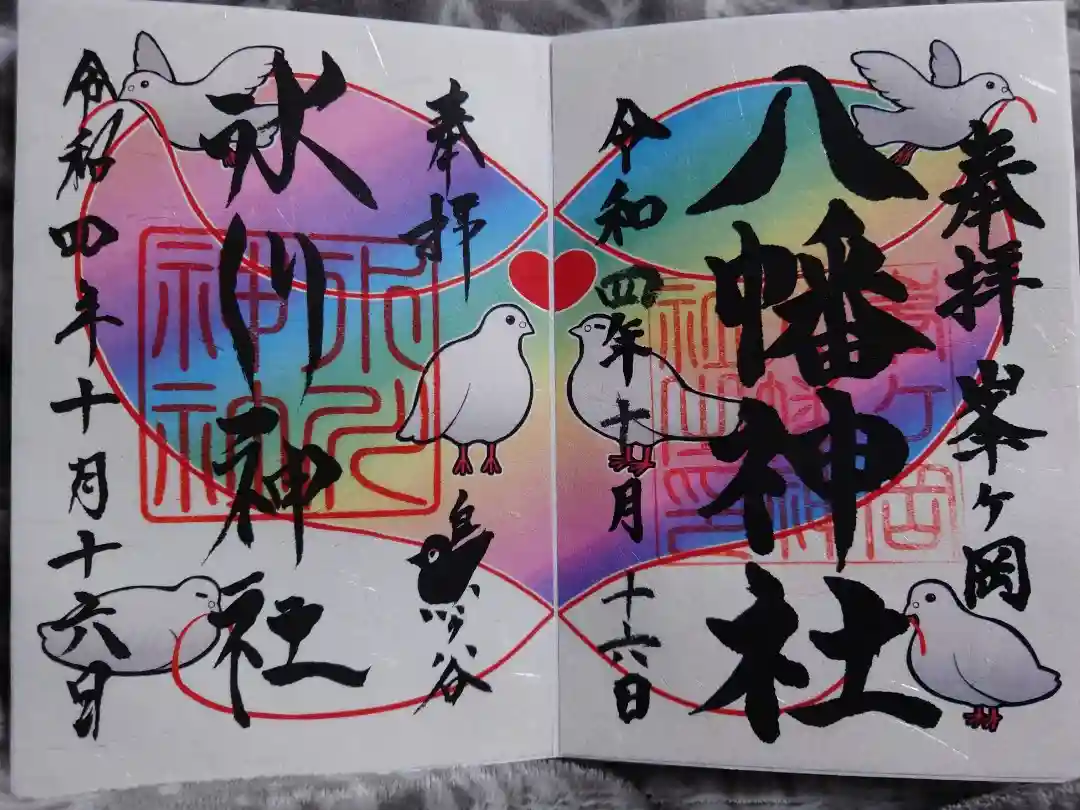 奉拝 峯ヶ岡
八幡神社
峯ヶ岡
八幡神
社之印
令和四年十月十六日
奉拝 鳩ヶ谷
氷川神社
氷川
神社
令和四年十月十六日